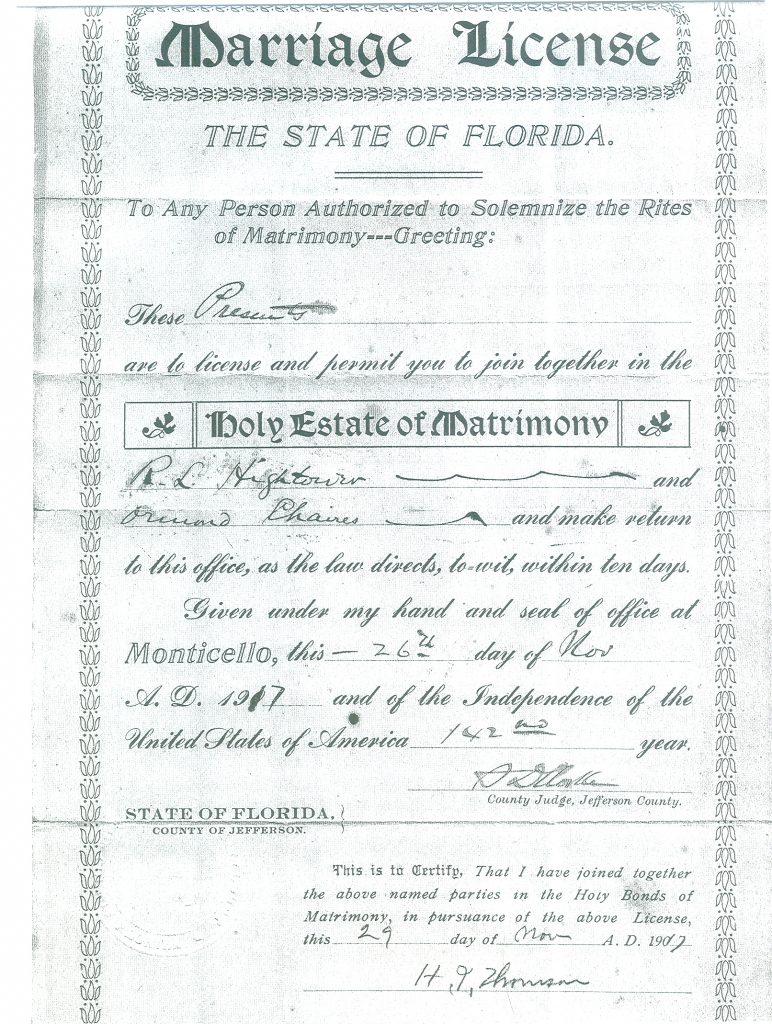 Marriage License
THE STATE OF FLORIDA.
To Any Person Authorized to Solemnize the Rites
of Matrimony---Greeting:
These Presents
are to license and permit you to join together in the
Holy Estate of Matrimony
R. L. Hightower and
Ormond Chaires and make return
to this office, as the law directs, to-wit, within ten days.
Given under my hand and seal of office at
Monticello, this - 26th day of Nov
A. D. 1917 and of the Independence of the
United States of America 142nd year.
County Judge, Jefferson County.
STATE OF FLORIDA,
COUNTY OF JEFFERSON.
This is to Certify, That I have joined together
the above named parties in the Holy Bonds of
Matrimony, in pursuance of the above License,
this 29 day of Nov A. D. 1917
H. Thomson